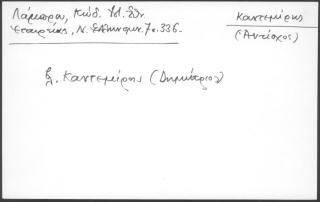 Λάμπρου, Κώδ. Ἱστ. Ἐθν.
Ἑταιρείας, Ν. Ἑλληνομν. 7ο. 336.
Καντεμίρης
(Ἀντίοχος)
βλ. Καντεμίρης (Δημήτριος)